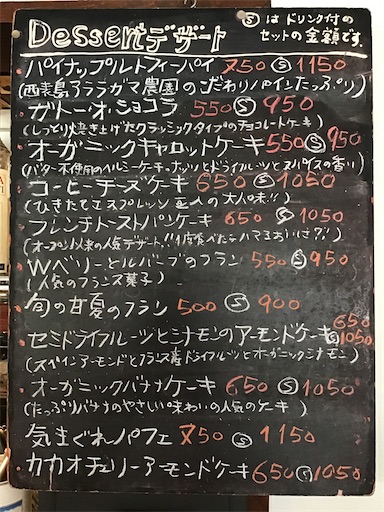 Dessert デザート
Ⓢ は ドリンク付の
セットの金額です。
パイナップルトフィーパイ 750 Ⓢ 1150
(西表島 アララガマ農園のこだわりパインたっぷり)
ガトー・オ・ショコラ 550 Ⓢ 950
(しっとり焼き上げたクラッシックタイプのチョコレートケーキ)
オーガニックキャロットケーキ 550 Ⓢ 950
(バター不使用のヘルシーケーキ。ナッツとドライフルーツとスパイスの香り)
コーヒーチーズケーキ 650 Ⓢ 1050
(ひきたてエスプレッソ 豆入の大人味!!)
フレンチトーストパンケーキ 650 Ⓢ 1050
(オープン以来の人気デザート!! 1度食べたらハマるおいしさ?!)
Wベリーとルバーブのフラン 550 Ⓢ 950
(人気のフランス菓子)
旬の甘夏のフラン 500 Ⓢ 900
セミドライフルーツとシナモンのアーモンドケーキ 650 Ⓢ 1050
(スペインアーモンドとフランス産ドライフルーツとオーガニックシナモン)
オーガニックバナナケーキ 650 Ⓢ 1050
(たっぷりバナナのやさしい味わいの人気のケーキ)
気まぐれパフェ 750 Ⓢ 1150
カカオチェリーアーモンドケーキ 650 Ⓢ 1050